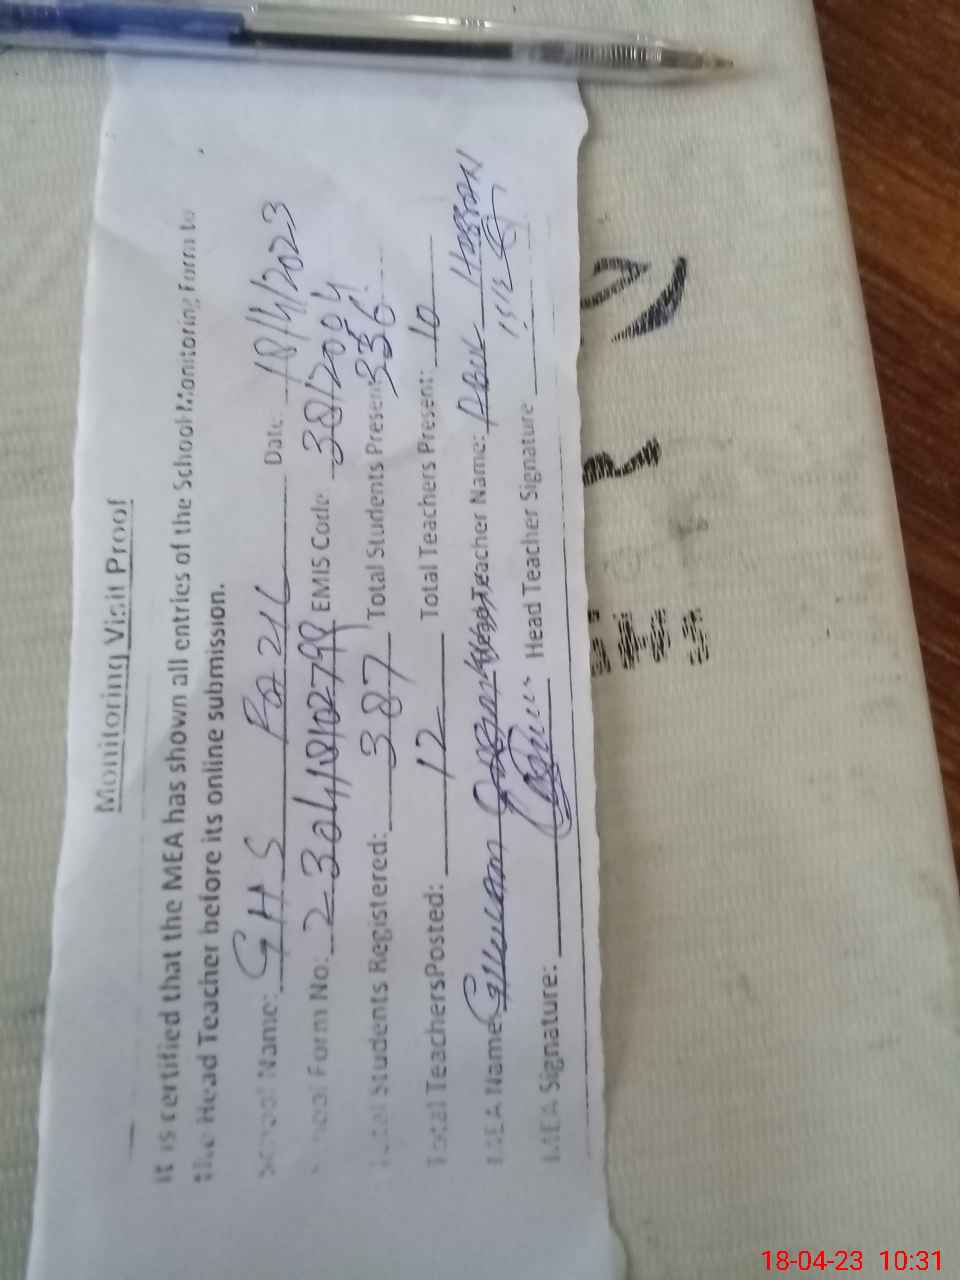 Monitoring Visit Proof
It is certified that the MEA has shown all entries of the School Monitoring Form to
the Head Teacher before its online submission.
School Name: GHS Date: 18/4/2023
School Form No: EMIS Code 3812004
Total Students Registered: 387 Total Students Present: 336
Total TeachersPosted: 12 Total Teachers Present: 10
MEA Name Ghulam Head Teacher Name: Abul Hassan
MEA Signature: Head Teacher Signature
18-04-23 10:31